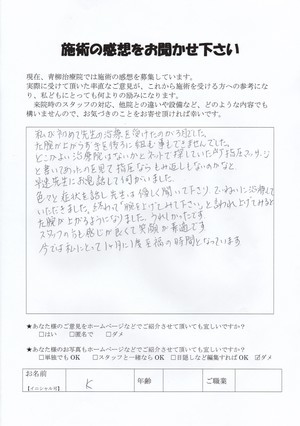 施術の感想をお聞かせ下さい
現在、青柳治療院では施術の感想を募集しています。
実際に受けて頂いた率直なご意見が、これから施術を受ける方への参考にな
り、私どもにとっても何よりの励みになります。
来院時のスタッフの対応、他院との違いや設備など、どのような内容でも
構いませんので、お気づきのことをお寄せ頂ければ幸いです。
私が初めて先生の治療を受けたのが
左腕が上がらず手を後ろに組む事もできませんでした。
どこかよい治療院はないかとネットで探していた所 指圧マッサージ
と書いてあったのを見て指圧ならもみ返ししないのかなと
早速先生にお電話して伺がいました。
色々と症状を話し先生は優しく聞いて下さり ていねいに治療して
いただきました。終わって"腕を上げてみて下さい"と言われ上げてみると
左腕が上がるようになりました。うれしかったです
スタッフの方も感じが良くて笑顔が素適です
今では私にとって1ヶ月に1度を癒の時間となっています
★あなた様のご意見をホームページなどでご紹介させて頂いても宜しいですか？
□はい □匿名で ☑ダメ
★あなた様のお写真もホームページなどでご紹介させて頂いても宜しいですか？
□単独でもOK □スタッフと一緒ならOK □目隠しなど編集すればOK ☑ダメ
お名前 K 年齢 ご職業
【イニシャル可】